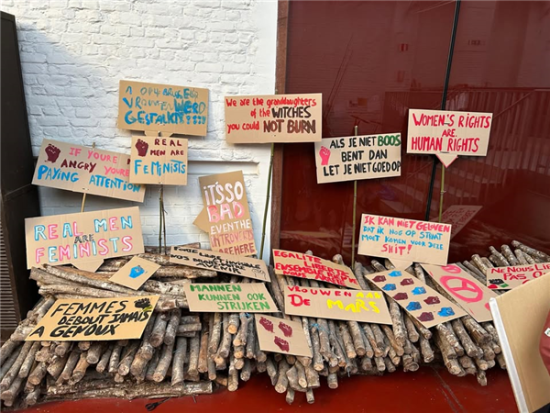 VROUWEN WERD
GESTALKT????
We are the granddaughters
of the WITCHES
you could NOT BURN
WOMEN'S RIGHTS
ARE
HUMAN RIGHTS
IF YOU'RE
ANGRY YOU'RE
PAYING ATTENTION
REAL
MEN ARE
FEMINISTS
ALS JE NIET BOOS
BENT DAN
LET JE NIET GOED OP
IT'S SO
BAD
EVEN THE
INTROVERTS
ARE HERE
REAL MEN
ARE
FEMINISTS
IK KAN NIET GELOVEN
DAT IK NOG OP STRAAT
MOET KOMEN VOOR DEZE
SHIT!
EGALITE
MANNEN
KUNNEN OOK
STRIJKEN
VROUWEN
DE MARS
FEMMES
DEBOUT JAMAIS
A GENOUX
NE NOUS LI
PAS